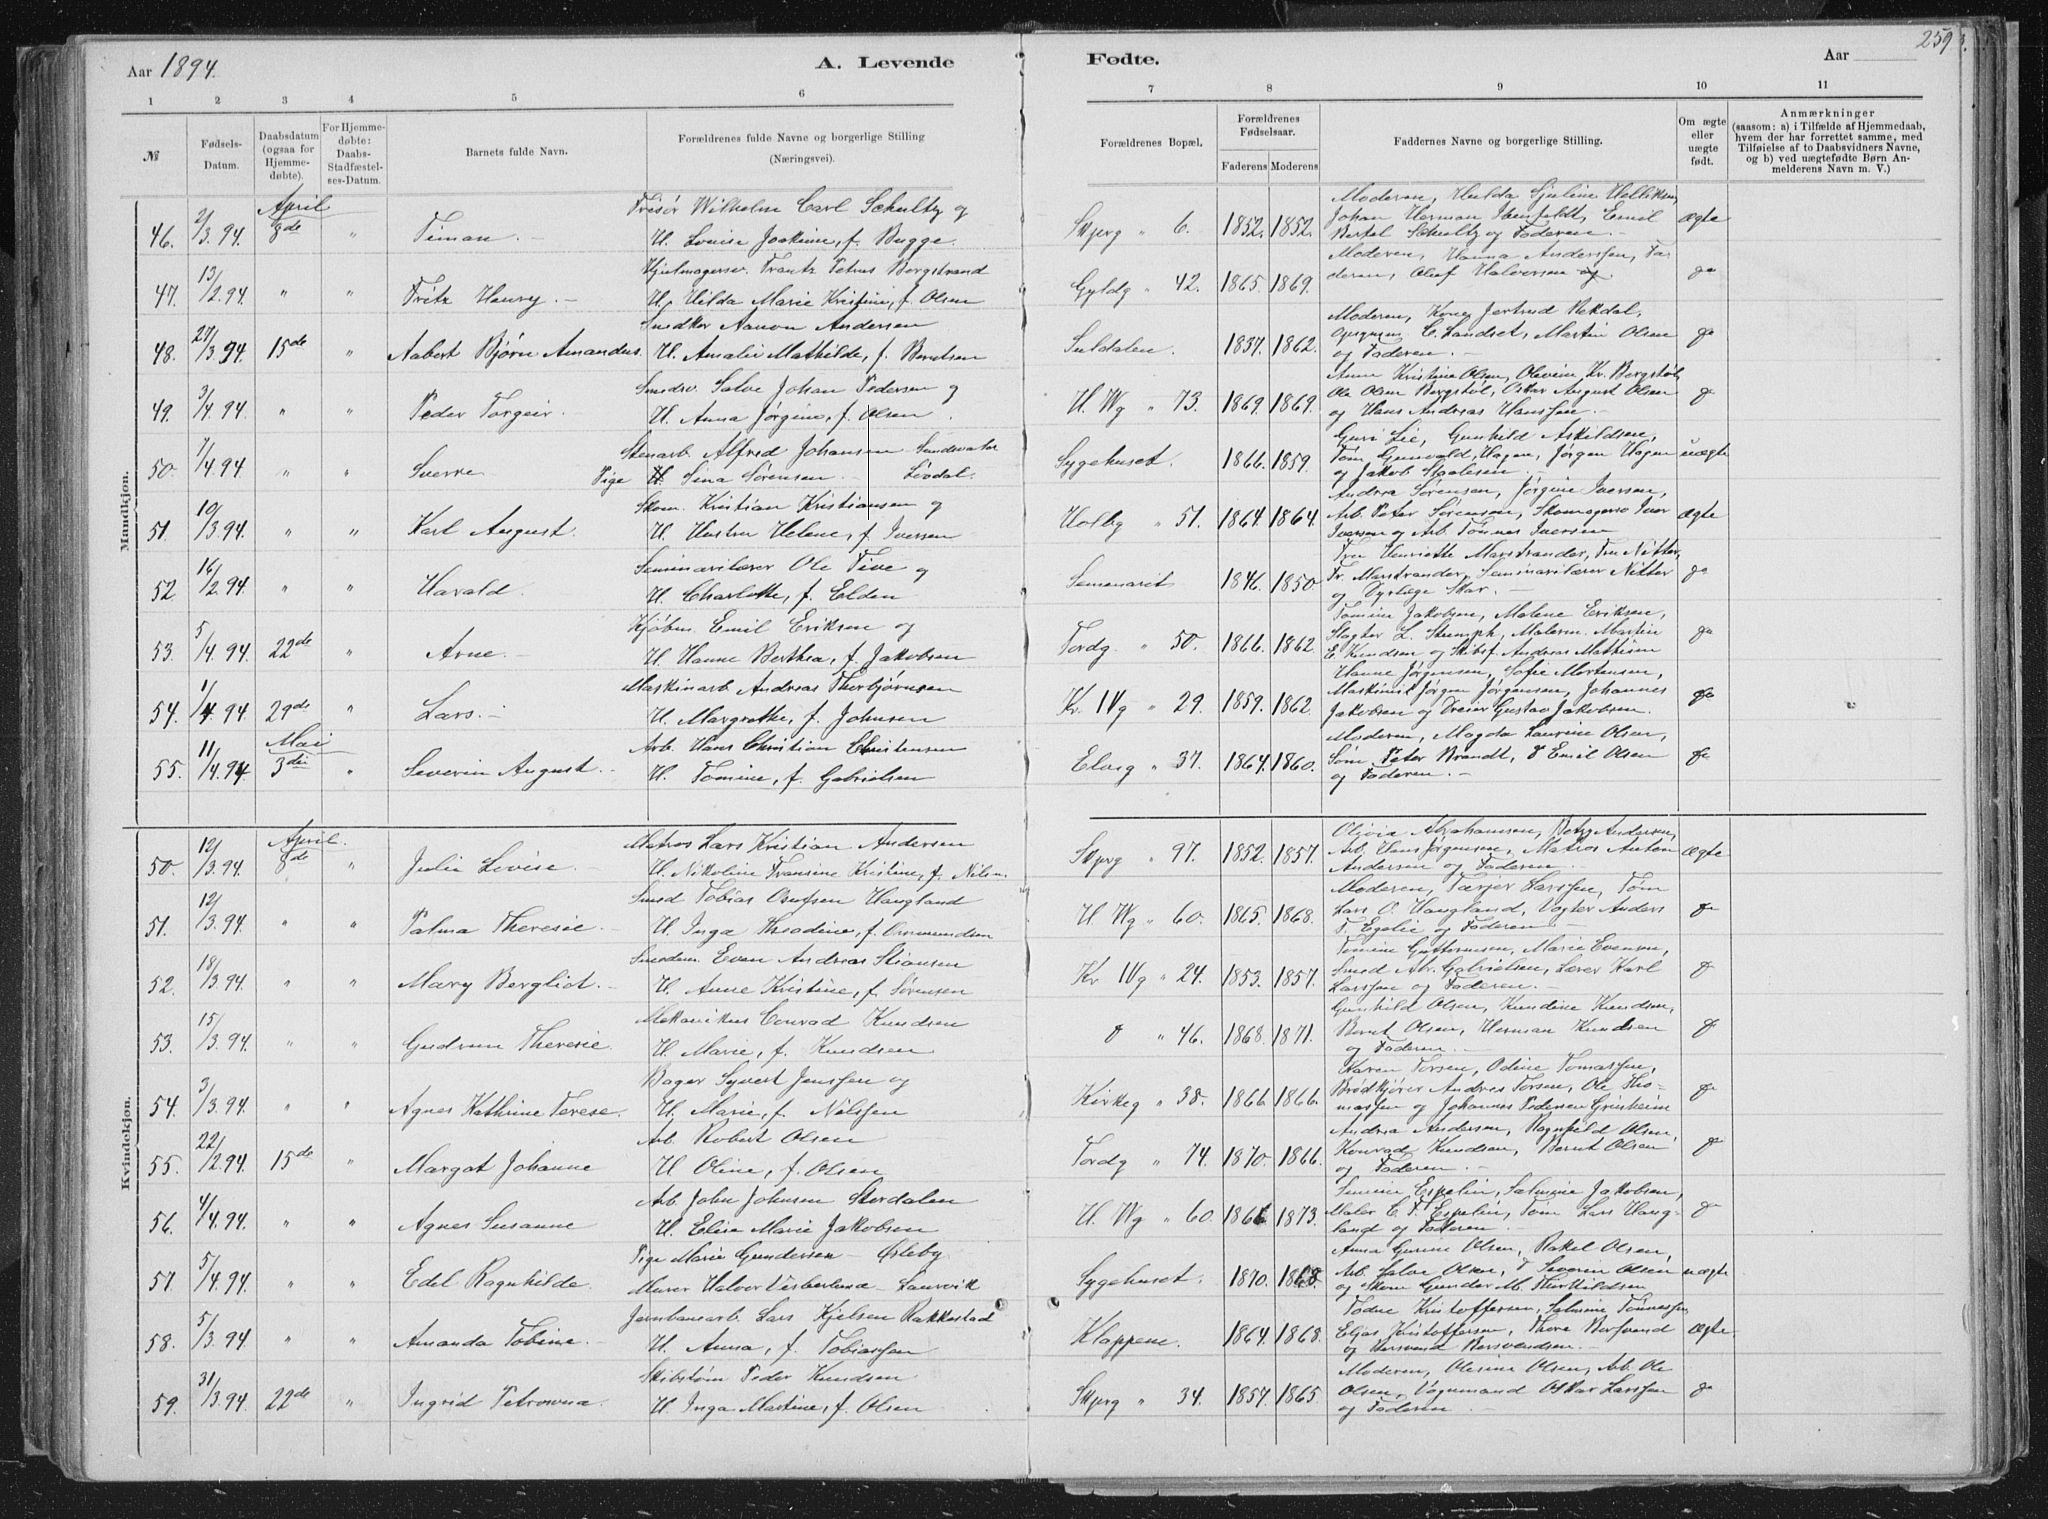 Aar 1894.
A. Levende Fødte.
Aar
259
1 2 3 4 5 6 7 8 9 10 11
№
Fødsels-Datum.
Daabsdatum (ogsaa for Hjemme-døbte).
For Hjemme-døbte: Daabs-Stadfæstel-ses-Datum.
Barnets fulde Navn.
Forældrenes fulde Navne og borgerlige Stilling (Næringsvei).
Forældrenes Bopæl.
Forældrenes Fødselsaar.
Faderens Moderens
Faddernes Navne og borgerlige Stilling.
Om ægte eller uægte født.
Anmærkninger
(saasom: a) i Tilfælde af Hjemmedaab, hvem der har forrettet samme, med Tilføielse af to Daabsvidners Navne, og b) ved uægtefødte Børn An-melderens Navn m. V.)
Mandkjøn.
April
46. 2/3.94. 8de " Timan. Frisør Wilhelm Carl Schultz og
H. Louise Joakine, f. Bugge. Skjerg " 6. 1852. 1852. Moderen, Hulda
Johan Herman Emil
Bertel Schultz og Faderen. ægte
47. 13/2.94. " " Fritz Henry. Hjulmagersv. Frantz Petrus Bergstrand
H. Hilda Marie Kristine, f. Olsen Gyldg " 42. 1865. 1869. Moderen, Hanna Anderssen, Fa-
deren, Oluf Halvorsen
48. 27/3.94. 15de " Aabert Bjørn Amandus. Snedker Aanon Andersen
H. Amalie Mathilde, f. Berntsen Suldalen. 1837. 1862. Moderen, Kone Jertrud Rekdal,
C. Sandset, Martin Olsen
og Faderen.
49. 3/4.94. " " Peder Torgeir. Smedsv. Salve Johan Pedersen og
H. Anna Jørgine, f. Olsen. H. Wg " 73. 1869. 1869. Anne Kristine Olsen, Olevine Kr. Bergstøl,
Ole Olsen Bergstøl, Oskar August Olsen
og Hans Andreas Hanssen.
50. 7/4 94 " " Sverre Stenarb. Alfred Johansen
Pige Sina Sørensen Sygehuset. 1866. 1859. Guri Lie, Gunhild Askildsen,
Tom Gunvald, Hagen, Jørgen Hagen
og Jakob Staalesen. uægte
51. 10/3 94. " " Karl August. Skom. Kristian Kristiansen og
H. Hustru Helene, f. Iversen Holbg " 51. 1864. 1864. Andrea Sørensen, Jørgine Iversen,
Arb. Peter Sørensen, Skomagersv Iver
Iversen og Arb. Tønnes Iversen ægte
52. 16/2 94. " " Harald. Seminarilærer Ole Five og
H. Charlotte, f. Elden Semenariet 1846. 1850 Fru Henriette Marstrander, Fru Nitter,
Fr. Marstrander, Seminarilærer Nitter
og Dyrlæge Skar.
53. 5/4.94. 22de " Arne. Kjøbm. Emil Eriksen og
H. Hanne Berthea, f. Jakobsen Tordg " 50. 1866. 1862. Tomine Jakobsen, Malene Eriksen,
Slagter L. Stumph, Malerm. Martin
E. Knudsen og Skibsf. Andreas Mathisen
54. 1/4 94. 29de " Lars. Maskinarb Andreas Thorbjørnsen
H. Margrethe, f. Johnsen Kr. IVg " 29. 1859. 1862. Hanne Jørgensen, Sofie Mortensen,
Maskinist Jørgen Jørgensen, Johannes
Jakobsen og Dreier Gustav Jakobsen.
Mai
55. 11/4.94 3die " Severin August. Arb. Hans Christian Christensen
H. Tomine, f. Gabrielsen Elveg " 37. 1864. 1860. Moderen, Magda Laurine Olsen,
Søm. Peter Brandt, Emil Olsen
og Faderen.
Kvindekjøn.
April.
50. 12/3.94. 8de " Julie Lovise. Matros Lars Kristian Andersen
H. Nikoline Fransine Kristine, f. Nilsen. Skjerg " 97. 1852. 1857. Olivia Abrahamsen, Betzy Andersen,
Arb. Hans Jørgensen, Matros Anton
Andersen og Faderen ægte
51. 12/3.94. " " Palma Theresie. Smed Tobias Osufsen Haugland
H. Inga Theodine, f. Ommundsen H. Wg " 60. 1865. 1868. Moderen, Tærjer Larssen, Tøm
Lars O. Haugland, Vogter Anders
T. Egelie og Faderen
52. 18/3.94. " " Mary Bergliot. Smedem. Even Andreas Stiansen
H. Anne Kristine, f. Sørensen Kr IVg " 24. 1853. 1857. Tomine Guttormsen, Marie Evensen,
Smed Abr. Gabrielsen, Lærer Karl
Larssen og Faderen.
53. 15/3.94. " " Gudrun Theresie. Mekanikus Conrad Knudsen
H. Marie, f. Knudsen " 46. 1868. 1871. Gunhild Olsen, Knudine Knudsen,
Bernt Olsen, Herman Knudsen
og Faderen.
54. 3/3.94. " " Agnes Kathrine Terese. Bager Syvert Jenssen og
H. Marie, f. Nilssen Kirkeg " 38. 1866 1866. Karen Torsen, Odine Tomassen,
Brødkjører Andreas Torsen, Ole Tho-
massen og Johannes Pedersen Grinheim
55. 22/2.94. 15de " Margot Johanne Arb. Robert Olsen
H Oline, f. Olsen Tordg " 74. 1870. 1866. Andrea Andersen, Ragnhild Olsen,
Konrad Knudsen, Bernt Olsen
og Faderen.
56. 4/4.94. " " Agnes Susanne Arb. John Johnsen Stordalen
H. Elise Marie Jakobsen H. Wg " 60. 1873. Espelin, Salmine Jakobsen,
Maler E. T. Espelin, Tøm Lars Haug-
land og Faderen.
57. 5/4.94. " " Edel Ragnhilde. Pige Marie Gundersen
Murer Halvor Laurvik Sygehuset. 1870. 1868 Anna Gurine Olsen, Rakel Olsen,
Arb. Salve Olsen, Severin Olsen
og Skom Gunder M. Thorkildsen uægte
58. 5/3.94 " " Amanda Tobine. Jernbanearb. Lars Kjelsen Rakkestad
H. Anna, f. Tobiassen Klappene. 1864. 1868. Todne Kristoffersen, Salmine Tønnessen,
Eljas Kristoffersen, Thore Bersvend
og Bersvend Bersvendsen. ægte
59. 31/3.94. 22de " Ingrid Petrowna. Skibstøm Peder Knudsen
H. Inga Martine, f. Olsen Skjerg " 34. 1857. 1865. Moderen, Olesine Olsen, Arb. Ole
Olsen, Vognmand Oskar Larssen
og Faderen